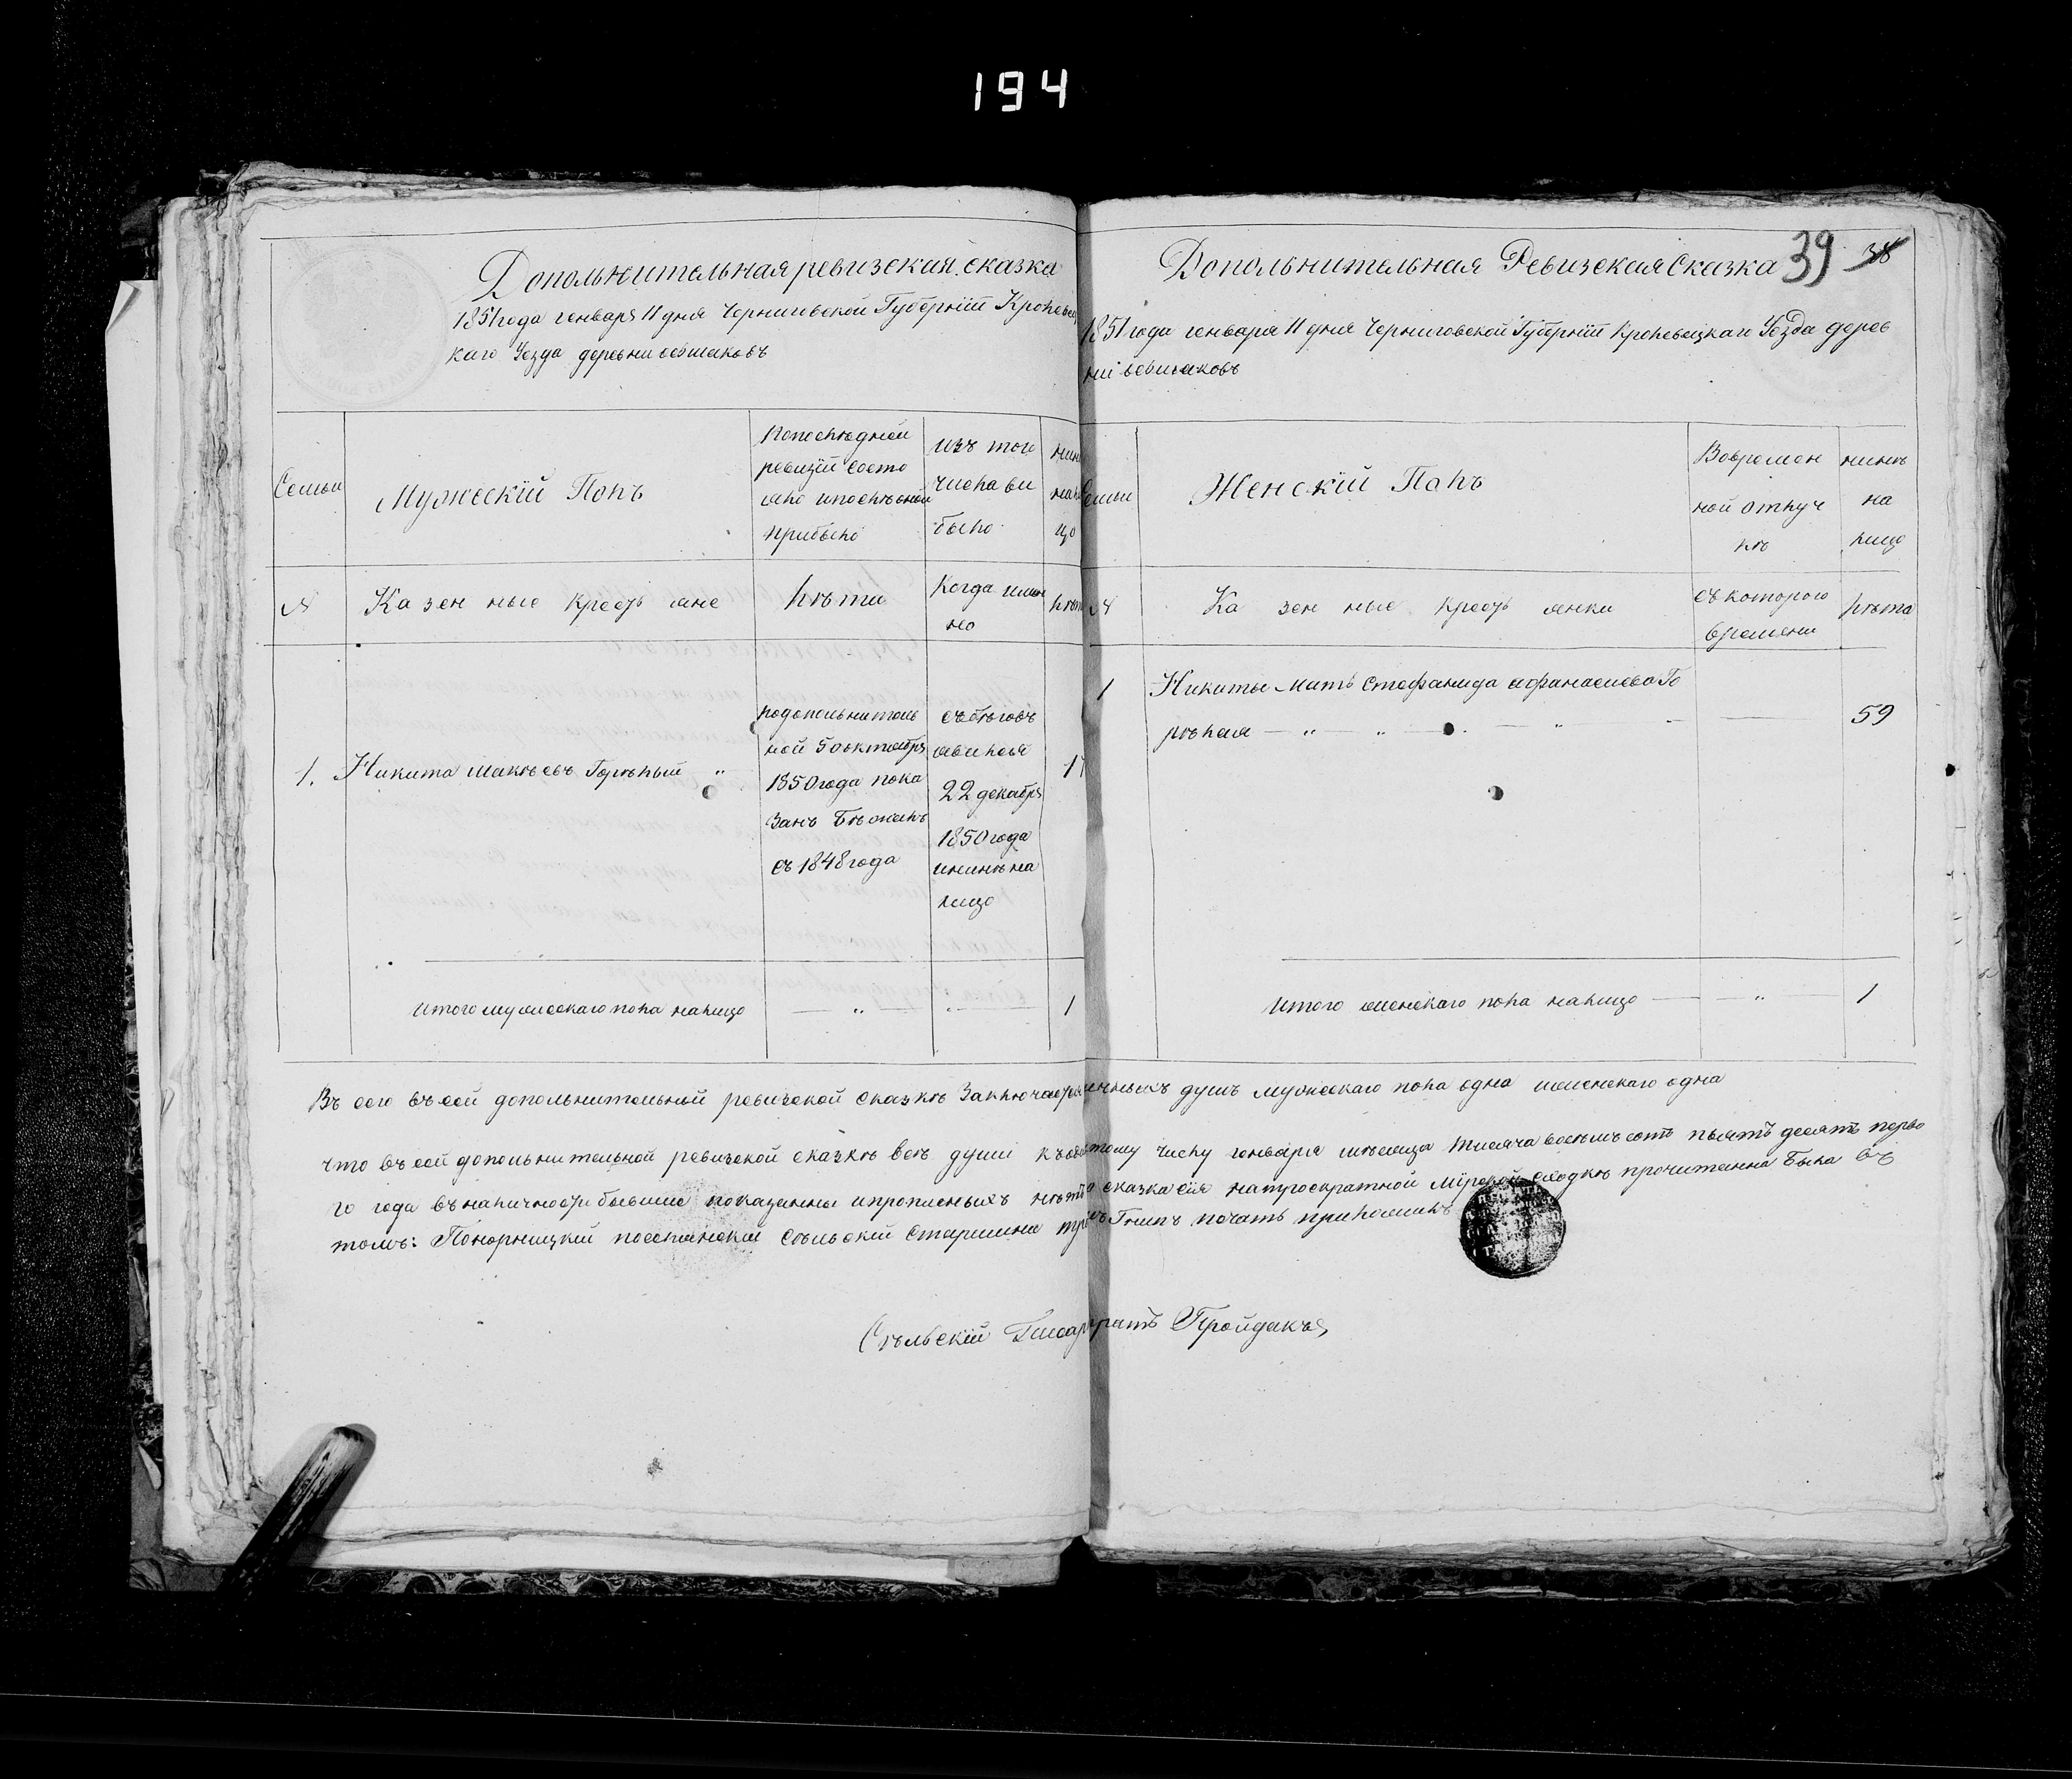 194
Дополънителъная ревизская сказка
1851 года генваря 11 дня Черниговской Губернїи Кролевец
каго Уезда деревни осьмаковъ
Семьи
Мужескїй Полъ
Попоследней
ревизїи состо
яло ипослеоной
прибыло
изъ того
числа вы
было
ныне
нали
цо
№
Казенные крестьяне
лета
Когда имен
но
лета
1.
Никита Макеевъ Горелый
подополнитель
ной 5 октября
1850 года пока
занъ Бежалъ
съ 1848 года
събеговъ
явилься
22 декабря
1850 года
иныне на
лицо
Итого мужескаго пола налицо
1
Дополънителъная Ревизская Сказка
39 38
1851 года генваря 11 дня Черниговской Губернїи Кролевецкаго Уезда дерев
Семьи
Женскїй Полъ
Вовремен
ной отлуч
ке
ныне
на
лицо
№
Казенные крестьянки
съ котораго
времени
лета
1
Никиты Мать Стефанида Афанасиева Го
релая
59
Итого женскаго пола налицо
1
Въ сего въ сей дополънителъный ревизской сказке Заключается душъ мужескаго пола одна женскаго одна
что въ сей дополнителъной ревизской сказке все души числу генваря месяца тысяча восемъ сотъ пьятъ десятъ перво
го года въ наличности бывшие показанны ипрописныхъ нетъ сказка сїя натроекратной Мїрской сходке прочитанна Была въ
томъ: Понорницкїй Селъскїй Старшина печатъ приложилъ
Селъскїй Писаръ Пройдакъ